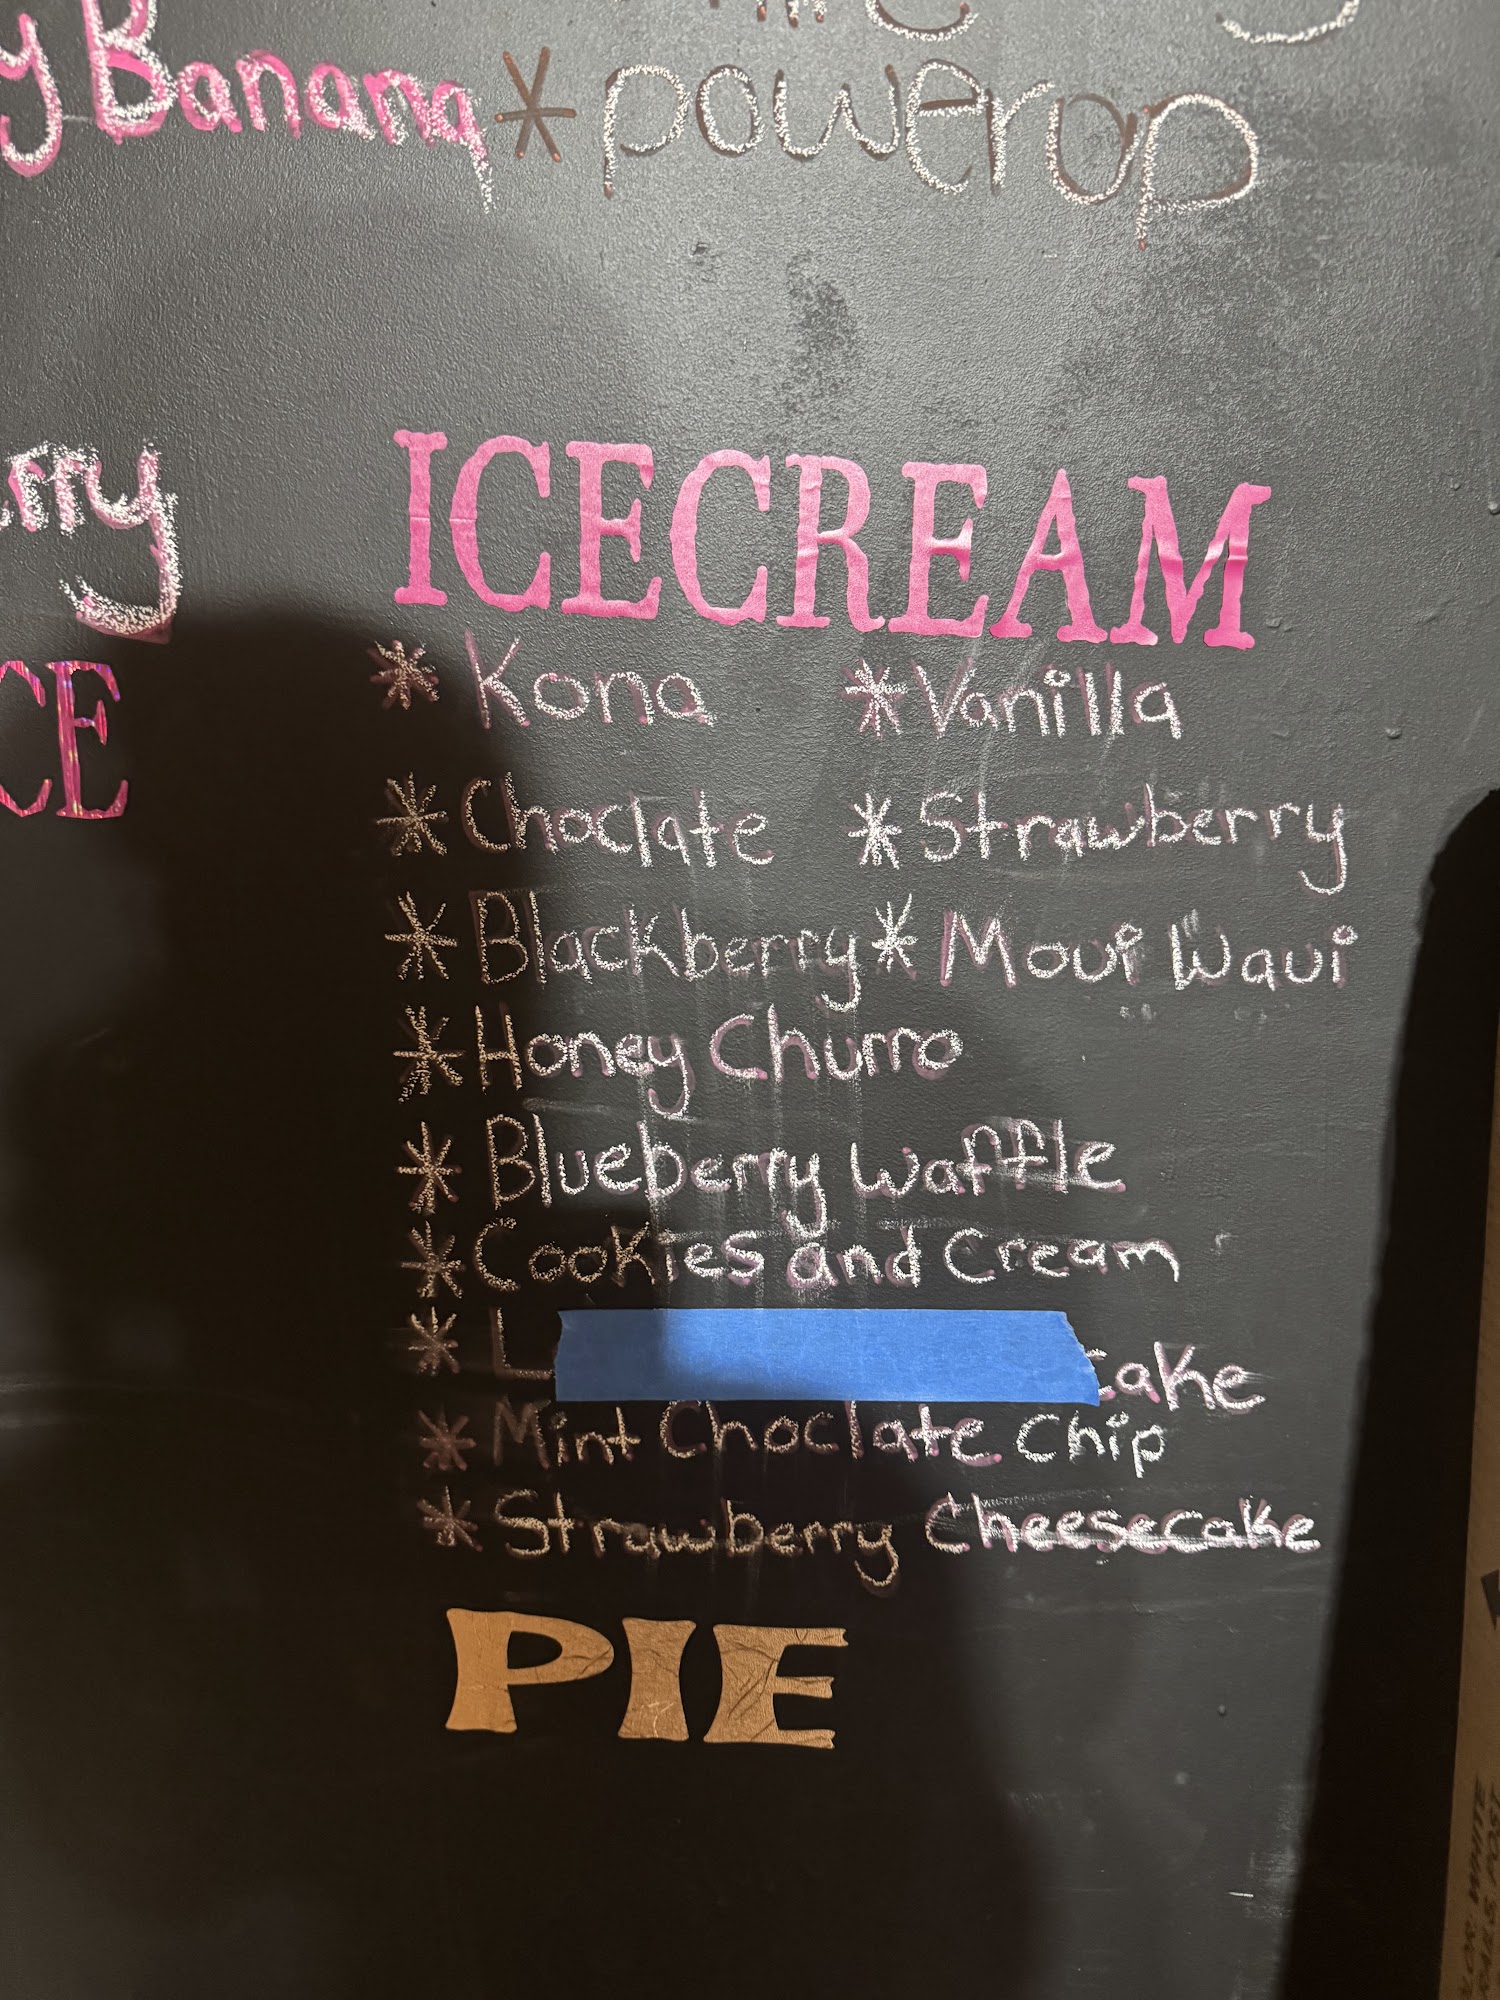 Banana * powerup
ICECREAM
* Kona * Vanilla
* Choclate * Strawberry
* Blackberry * Moui Waui
* Honey Churro
* Blueberry Waffle
* Cookies and Cream
*
* Mint Choclate Chip
* Strawberry Cheesecake
PIE
WHITE